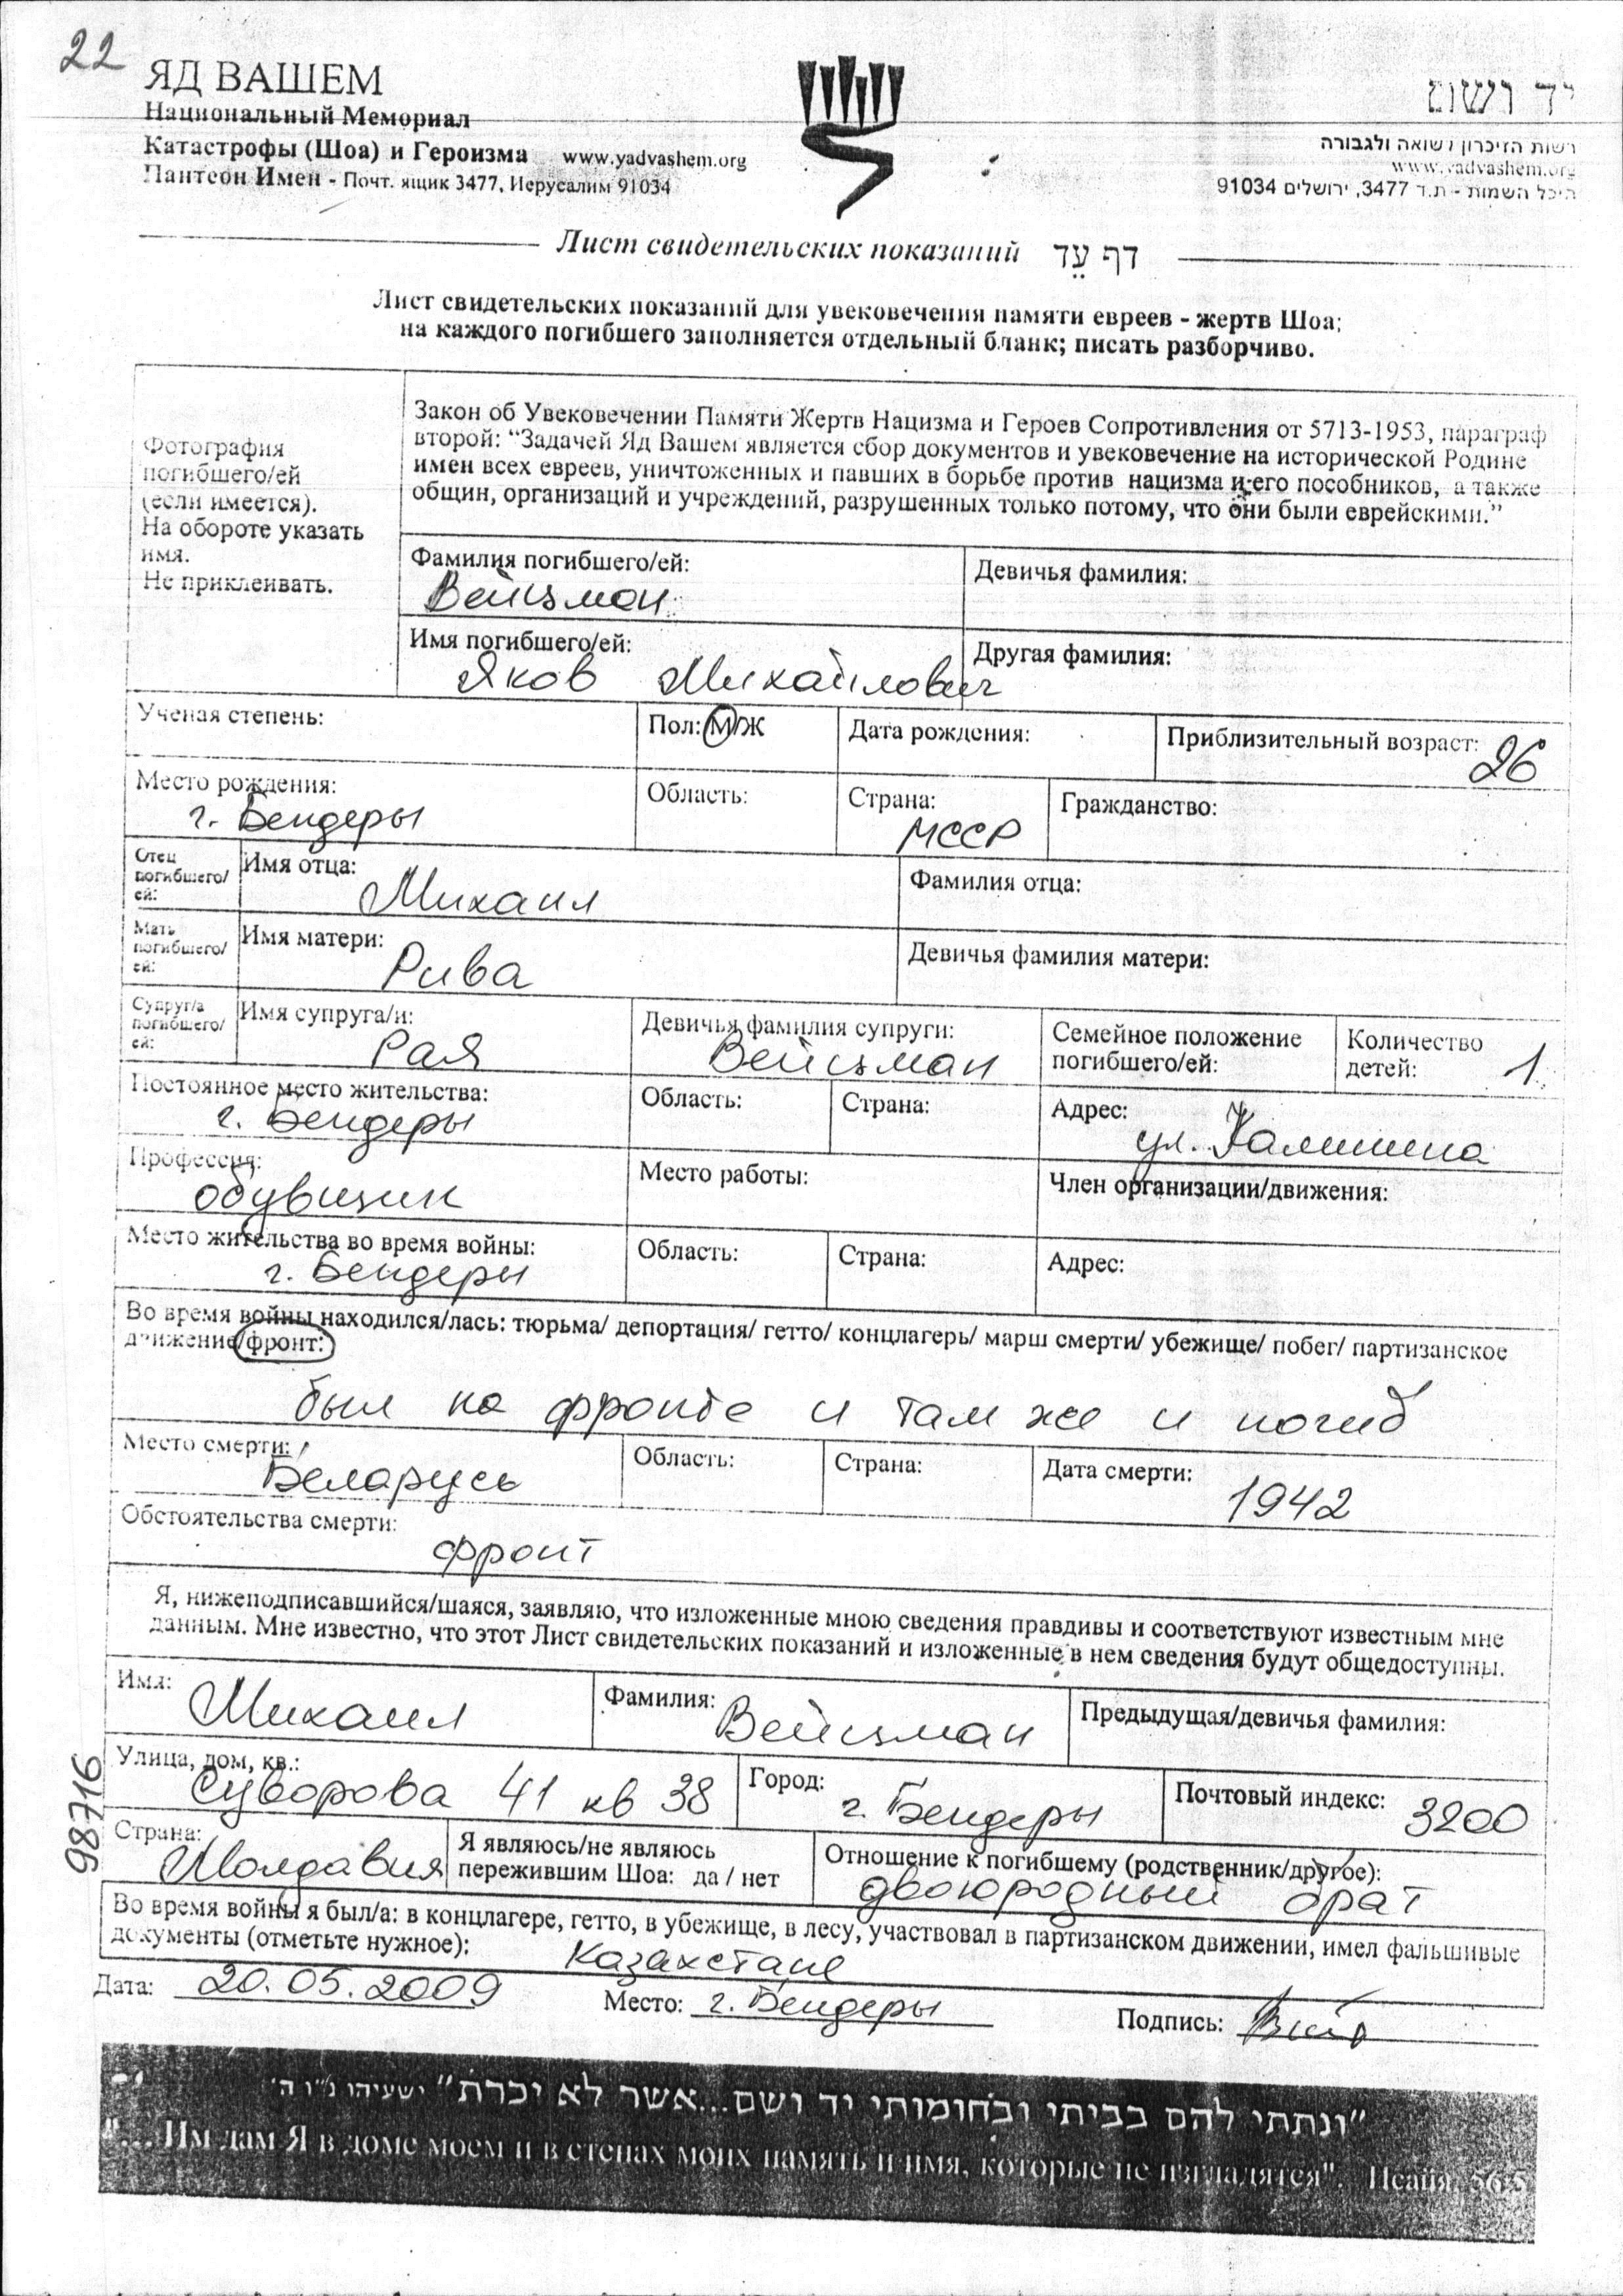 22
ЯД ВАШЕМ
Национальный Мемориал
Катастрофы (Шоа) и Героизма www.yadvashem.org
Пантеон Имен - Почт. ящик 3477, Иерусалим 91034
יד ושם
רשות הזיכרון לשואה ולגבורה
www.yadvashem.org
היכל השמות - ת.ד 3477, ירושלים 91034
Лист свидетельских показаний דף עֵד
Лист свидетельских показаний для увековечения памяти евреев - жертв Шоа;
на каждого погибшего заполняется отдельный бланк; писать разборчиво.
Фотография
погибшего/ей
(если имеется).
На обороте указать
имя.
Не приклеивать.
Закон об Увековечении Памяти Жертв Нацизма и Героев Сопротивления от 5713-1953, параграф
второй: “Задачей Яд Вашем является сбор документов и увековечение на исторической Родине
имен всех евреев, уничтоженных и павших в борьбе против нацизма и его пособников, а также
общин, организаций и учреждений, разрушенных только потому, что они были еврейскими.”
Фамилия погибшего/ей: Девичья фамилия:
Вейцман
Имя погибшего/ей: Другая фамилия:
Яков Михайлович
Ученая степень: Пол: М/Ж Дата рождения: Приблизительный возраст: 26
Место рождения: Область: Страна: Гражданство:
г. Бендеры МССР
Отец погибшего/ей: Имя отца: Фамилия отца:
Михаил
Мать погибшего/ей: Имя матери: Девичья фамилия матери:
Рива
Супруг/а погибшего/ей: Имя супруга/и: Девичья фамилия супруги: Семейное положение погибшего/ей: Количество детей: 1
Рая Вейцман
Постоянное место жительства: Область: Страна: Адрес:
г. Бендеры ул. Калинина
Профессия: Место работы: Член организации/движения:
обувщик
Место жительства во время войны: Область: Страна: Адрес:
г. Бендеры
Во время войны находился/лась: тюрьма/ депортация/ гетто/ концлагерь/ марш смерти/ убежище/ побег/ партизанское
движение/фронт:
был на фронте и там же и погиб
Место смерти: Область: Страна: Дата смерти:
Беларусь 1942
Обстоятельства смерти:
фронт
Я, нижеподписавшийся/шаяся, заявляю, что изложенные мною сведения правдивы и соответствуют известным мне
данным. Мне известно, что этот Лист свидетельских показаний и изложенные в нем сведения будут общедоступны.
Имя: Фамилия: Предыдущая/девичья фамилия:
Михаил Вейцман
Улица, дом, кв.: Город: Почтовый индекс:
Суворова 41 кв 38 г. Бендеры 3200
98716
Страна: Я являюсь/не являюсь Отношение к погибшему (родственник/другое):
Молдавия пережившим Шоа: да / нет двоюродный брат
Во время войны я был/а: в концлагере, гетто, в убежище, в лесу, участвовал в партизанском движении, имел фальшивые
документы (отметьте нужное): Казахстане
Дата: 20.05.2009 Место: г. Бендеры Подпись:
"ונתתי להם בביתי ובחומותי יד ושם...אשר לא יכרת" ישעיהו נ"ו ה'
"... Им дам Я в доме моем и в стенах моих память и имя, которые не изгладятся". Исайя, 56:5